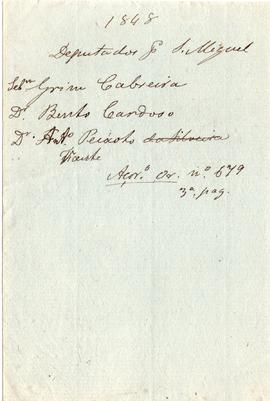 1848
Deputados p. S. Miguel
Grim Cabreira
Dr. Bento Cardoso
Dr. Antº Peixoto da Silveira
Vicente
Açorº Or. nº 679
3ª pag.